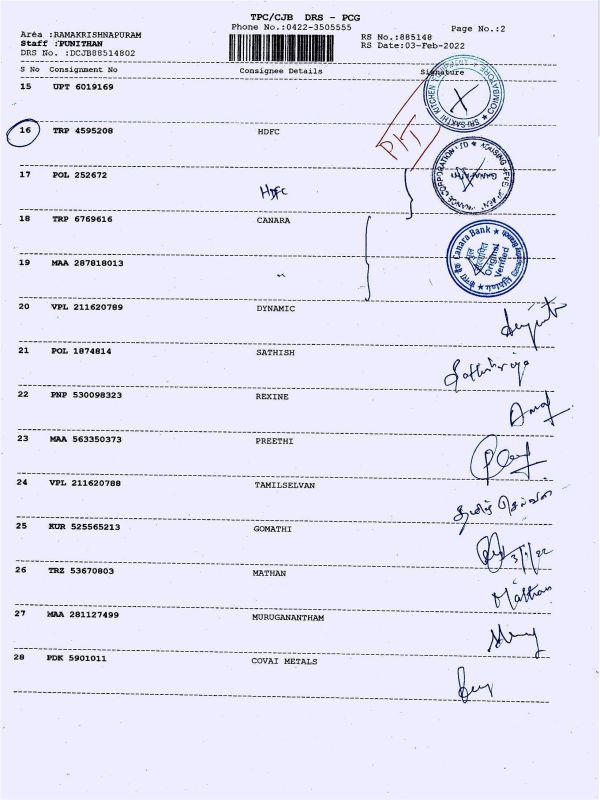 TPC/CJB DRS - PCG
Phone No.:0422-3505555
Page No.:2
Area :RAMAKRISHNAPURAM
Staff :PUNITHAN
DRS No. :DCJB88514802
RS No.:885148
RS Date:03-Feb-2022
S No Consignment No Consignee Details Signature
15 UPT 6019169
SRI SAKTHI KITCHEN EQUIPMENT ★ COIMBATORE ★
16 TRP 4595208 HDFC
17 POL 252672 Hdfc
18 TRP 6769616 CANARA
Canara Bank
Original
Verified
19 MAA 287818013 "
20 VPL 211620789 DYNAMIC
21 POL 1874814 SATHISH
22 PNP 530098323 REXINE
23 MAA 563350373 PREETHI
24 VPL 211620788 TAMILSELVAN
25 KUR 525565213 GOMATHI
26 TRZ 53670803 MATHAN
Mathan
27 MAA 281127499 MURUGANANTHAM
28 PDK 5901011 COVAI METALS